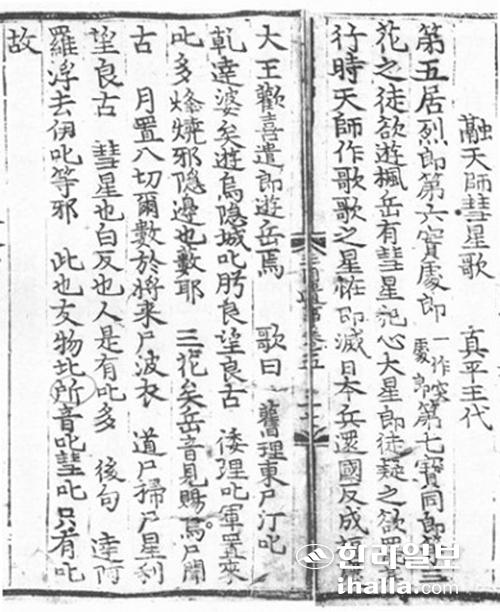 融天師彗星歌 真平王代
第五居烈郎第六實處郎一作突處郎第七寶同郎等三
花之徒欲遊楓岳有彗星犯心大星郎徒疑之欲罷
行時天師作歌歌之星恠即滅日本兵還國反成福
三國遺事卷五
大王歡喜遣郎遊岳焉 歌曰 舊理東尸汀叱
乾達婆矣遊烏隱城叱肹良望良古 倭理叱軍置來
叱多烽燒邪隱邊也藪耶 三花矣岳音見賜烏尸聞
古 月置八切爾數於將來尸波衣 道尸掃尸星利
望良古 彗星也白反也人是有叱多 後句 達阿
羅浮去伊叱等邪 此也友物北所音叱彗叱只有叱
故
한라일보
ihalla.com